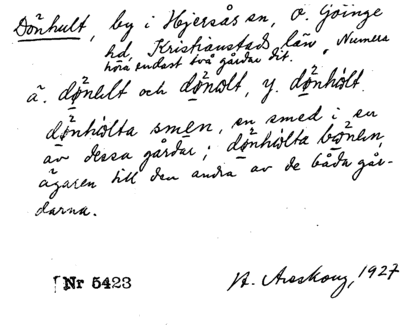 Dönhult, by i Hjersås sn, Ö. Göinge
hd, Kristianstads län. Numera
höra endast två gårdar dit.
ä. dø̄nelt och dø̄nolt, y. dø̄nhʉlt
dø̄nhʉlta smen, en smed i en
av dessa gårdar; dø̄nhʉlta bonen,
ägaren till den andra av de båda går-
darna.
Nr 5423
A. Areskoug, 1927